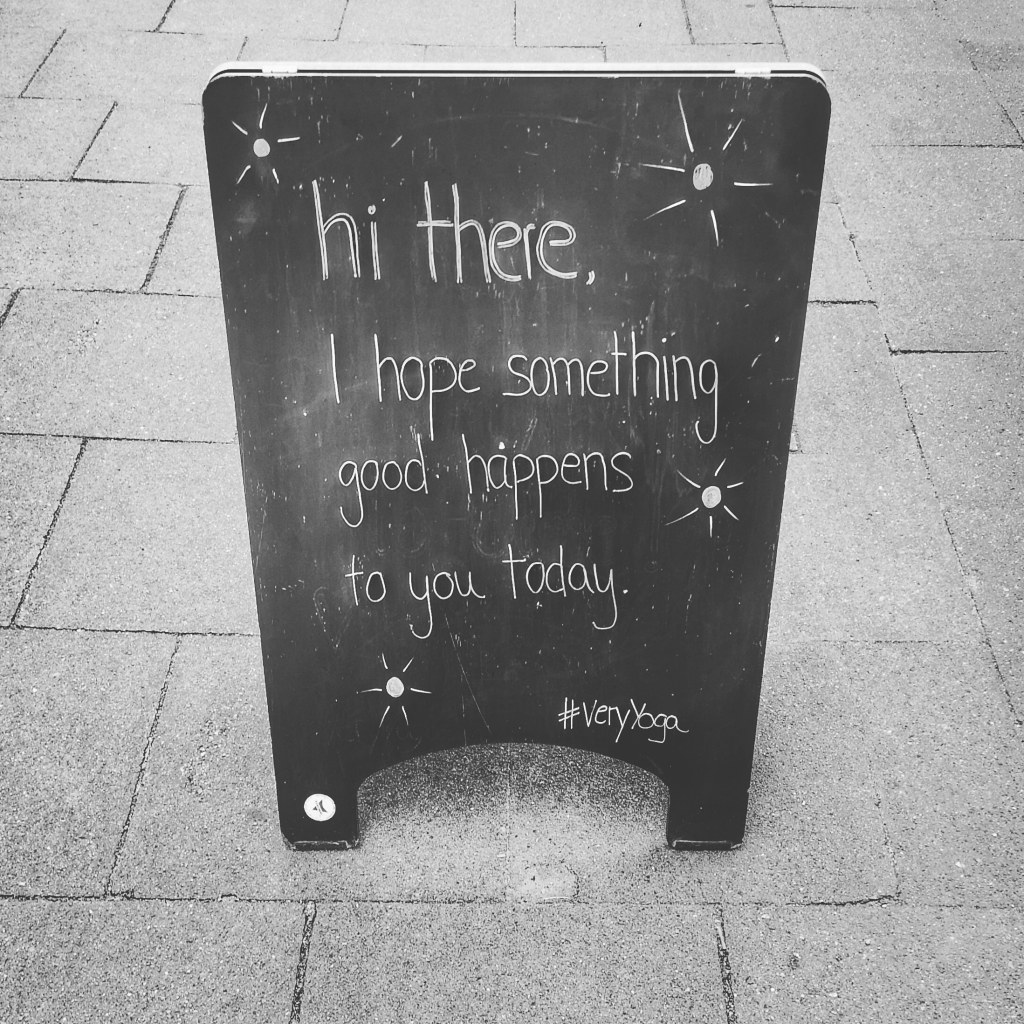 hi there,
I hope something
good happens
to you today.
#veryYoga